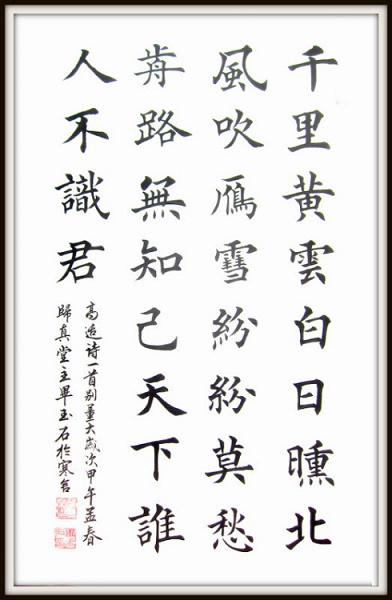 千里黄雲白日曛北
風吹鴈雪紛紛莫愁
歬路無知己天下誰
人不識君
高适诗一首别董大歲次甲午孟春
歸真堂主畢玉石於寒舍